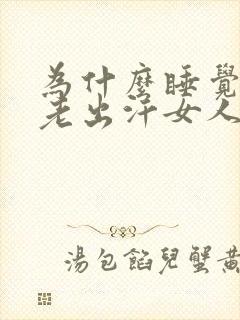 為什麼睡覺
老出汗女人
湯包餡兒蟹黃